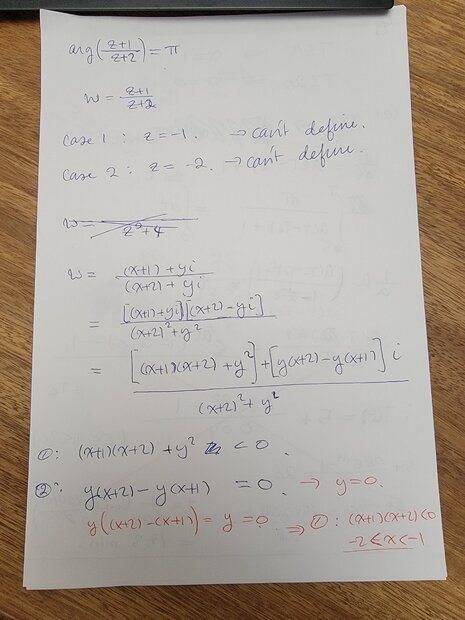 arg(z+1/z+2) = π
w = z+1/z+2
case 1 : z = -1. → can't define.
case 2 : z = -2. → can't define.
w = /z²+4
w = (x+1) + yi/(x+2) + yi
= [(x+1)+yi][(x+2) - yi]/(x+2)² + y²
= [(x+1)(x+2) + y²] + [y(x+2) - y(x+1)] i/(x+2)² + y²
①: (x+1)(x+2) + y² < 0.
②: y(x+2) - y(x+1) = 0. → y = 0.
y((x+2) - (x+1)) = y = 0. ⇒ ①: (x+1)(x+2) < 0
-2 ≤ x < -1